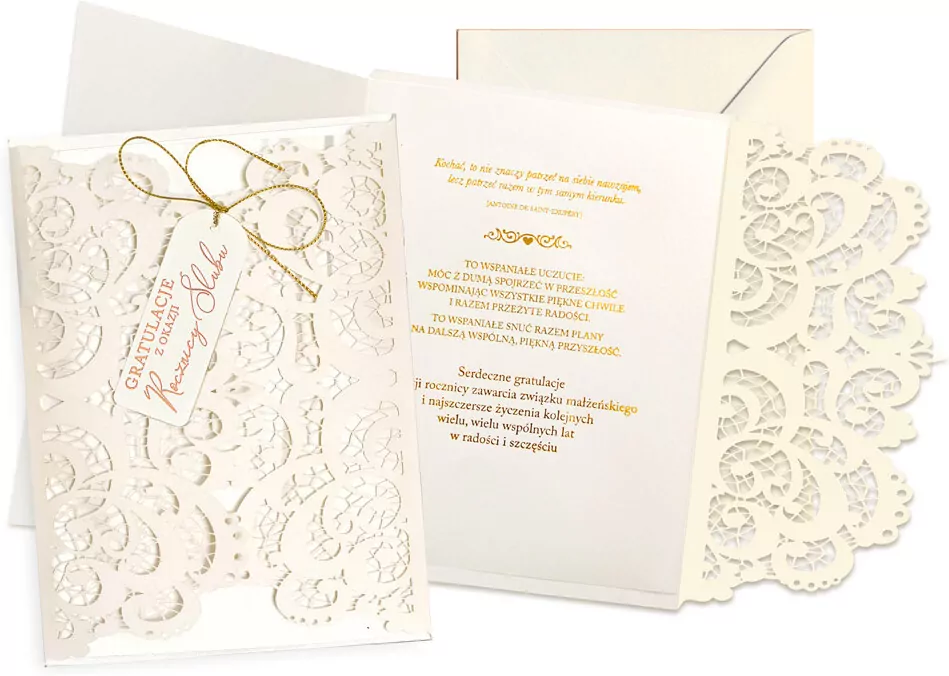 GRATULACJE
Z OKAZJI
Rocznicy Ślubu
Kochać, to nie znaczy patrzeć na siebie nawzajem,
lecz patrzeć razem w tym samym kierunku.
(ANTOINE DE SAINT-EXUPÉRY)
TO WSPANIAŁE UCZUCIE:
MÓC Z DUMĄ SPOJRZEĆ W PRZESZŁOŚĆ
WSPOMINAJĄC WSZYSTKIE PIĘKNE CHWILE
I RAZEM PRZEŻYTE RADOŚCI.
TO WSPANIAŁE SNUĆ RAZEM PLANY
NA DALSZĄ WSPÓLNĄ, PIĘKNĄ PRZYSZŁOŚĆ.
Serdeczne gratulacje
ji rocznicy zawarcia związku małżeńskiego
i najszczersze życzenia kolejnych
wielu, wielu wspólnych lat
w radości i szczęściu